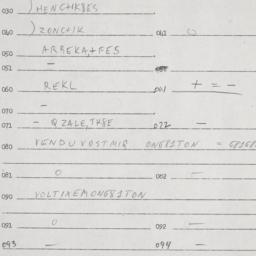 030 ) HENCHKBES
040 ) ZONCHIK 042 0
050 ARREKA,+FES
051 —
060 REKL 061 + = —
070 —
071 — QZALE,TKBE 072 —
080 VENDUVOSTMIR ONE81TON =
081 0 082 —
090 VOLTIXEMONE81TON
091 0 092 —
093 — 094 —